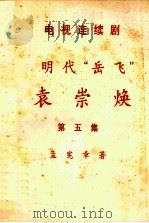 电视连续剧
明代“岳飞”
袁崇焕
第五集
孟宪章著